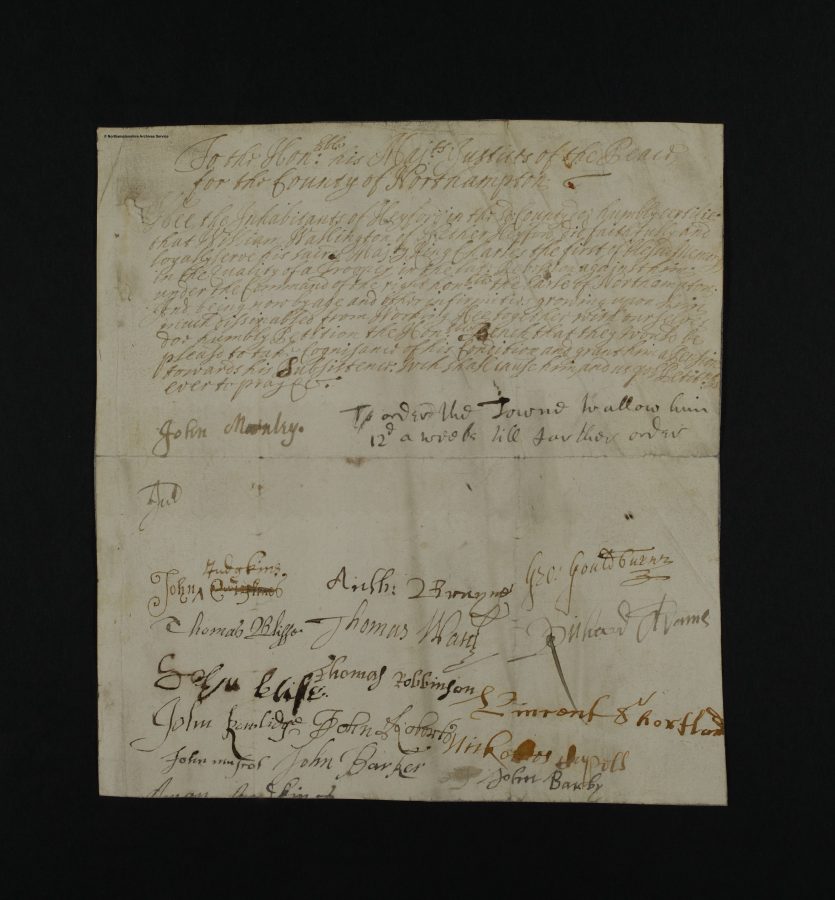 © Northamptonshire Archives Service
To the Hon:ble his Maj:ts Justices of the Peace
for the County of Northampton
Wee the Inhabitants of Heyford in the County humbly certifie
that William Wallington of Nether Heyford did faithfully and
loyally serve his Sacred Maj:ty King Charles the first of blessed memory
in the quality of a Trooper in the late Rebellion against him
under the Command of the right hon:ble the Earle of Northampton:
and being now by age and other infirmities growing upon him
much dissinabled from Working Wee together with our
doe humbly Petition the Hon:ble Bench that they would be
please to take Cognisance of his Condition and grant him a Pension
towards his Subsistence: wch shall cause him and us yor Petit:rs
ever to pray &c:
John Manley.
To order the Towne to allow him
12d a weeke till further order
Jud
Judgkins
John
Arth: Brayne
Geo: Gouldburne
Thomas Blisse
Thomas Ward
Richard Adams
John blise
Thomas Robbinson
Vincent Shortland
John
John Roberts
John
John Barker
John Barby